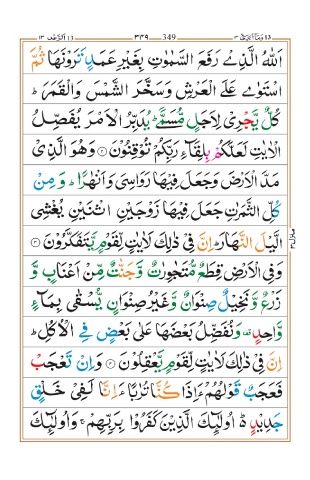 349
اَللّٰهُ الَّذِىْ رَفَعَ السَّمٰوٰتِ بِغَيْرِ عَمَدٍ تَرَوْنَهَا ثُمَّ
اسْتَوٰى عَلَى الْعَرْشِ وَسَخَّرَ الشَّمْسَ وَالْقَمَرَ ؕ
كُلٌّ يَّجْرِىْ لِاَجَلٍ مُّسَمًّى ؕ يُدَبِّرُ الْاَمْرَ يُفَصِّلُ
الْاٰيٰتِ لَعَلَّكُمْ بِلِقَآءِ رَبِّكُمْ تُوْقِنُوْنَ ۞ وَهُوَ الَّذِىْ
مَدَّ الْاَرْضَ وَجَعَلَ فِيْهَا رَوَاسِىَ وَاَنْهٰرًا ؕ وَمِنْ
كُلِّ الثَّمَرٰتِ جَعَلَ فِيْهَا زَوْجَيْنِ اثْنَيْنِ يُغْشِى
الَّيْلَ النَّهَارَ ؕ اِنَّ فِىْ ذٰلِكَ لَاٰيٰتٍ لِّقَوْمٍ يَّتَفَكَّرُوْنَ ۞
وَفِى الْاَرْضِ قِطَعٌ مُّتَجٰوِرٰتٌ وَّجَنّٰتٌ مِّنْ اَعْنَابٍ وَّ
زَرْعٌ وَّنَخِيْلٌ صِنْوَانٌ وَّغَيْرُ صِنْوَانٍ يُّسْقٰى بِمَآءٍ
وَّاحِدٍ وَنُفَضِّلُ بَعْضَهَا عَلٰى بَعْضٍ فِى الْاُكُلِ ؕ
اِنَّ فِىْ ذٰلِكَ لَاٰيٰتٍ لِّقَوْمٍ يَّعْقِلُوْنَ ۞ وَاِنْ تَعْجَبْ
فَعَجَبٌ قَوْلُهُمْ ءَاِذَا كُنَّا تُرٰبًا ءَاِنَّا لَفِىْ خَلْقٍ
جَدِيْدٍ ۬ؕ اُولٰٓئِكَ الَّذِيْنَ كَفَرُوْا بِرَبِّهِمْ ۚ وَاُولٰٓئِكَ